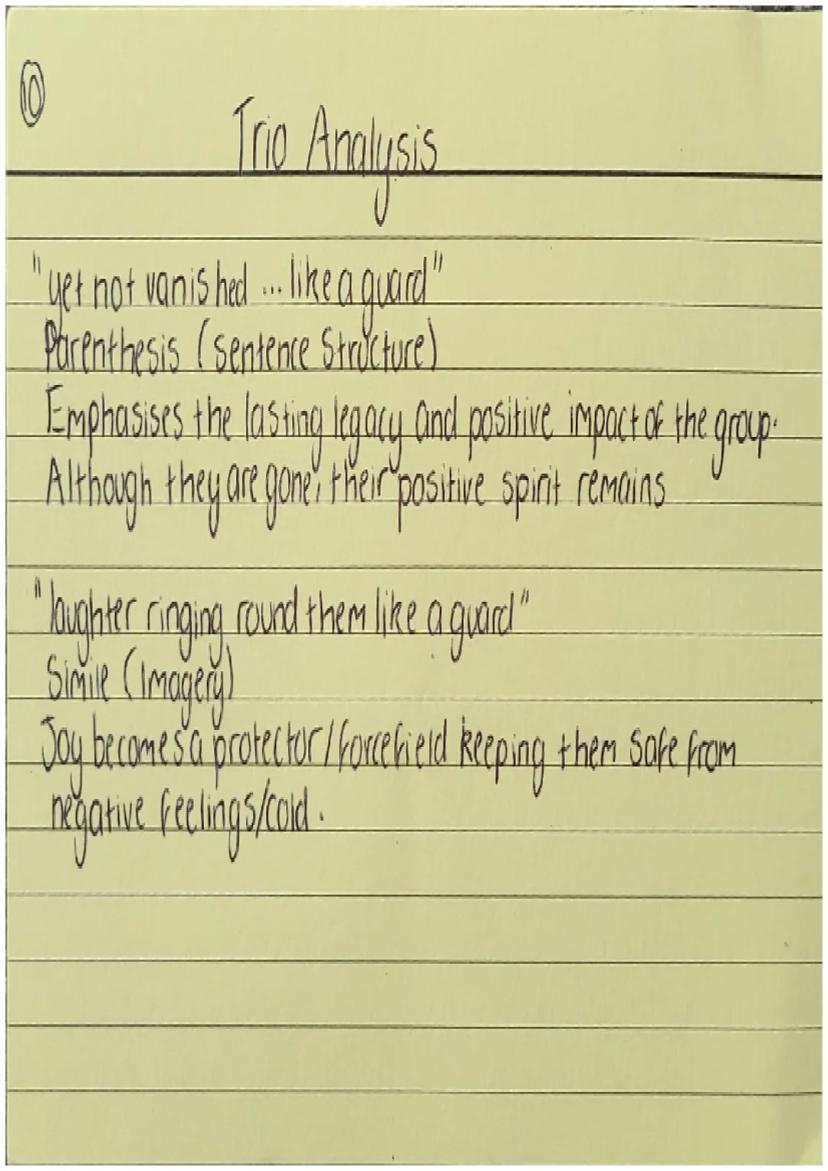 10
Trio Analysis
"yet not vanished ... like a guard"
Parenthesis (sentence structure)
Emphasises the lasting legacy and positive impact of the group.
Although they are gone, their positive spirit remains
"laughter ringing round them like a guard"
Simile (Imagery)
Joy becomes a protector/forcefield keeping them safe from
negative feelings/cold.